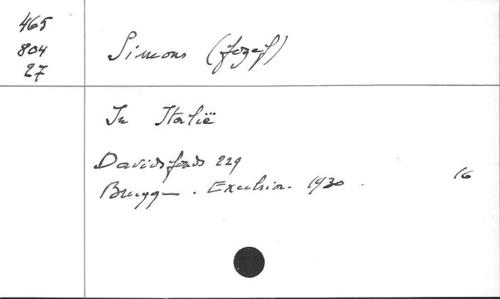 465
804
27
Simons (Jozef)
In Italië
Davidsfonds 229
Brugge. Excelsior. 1930. 16